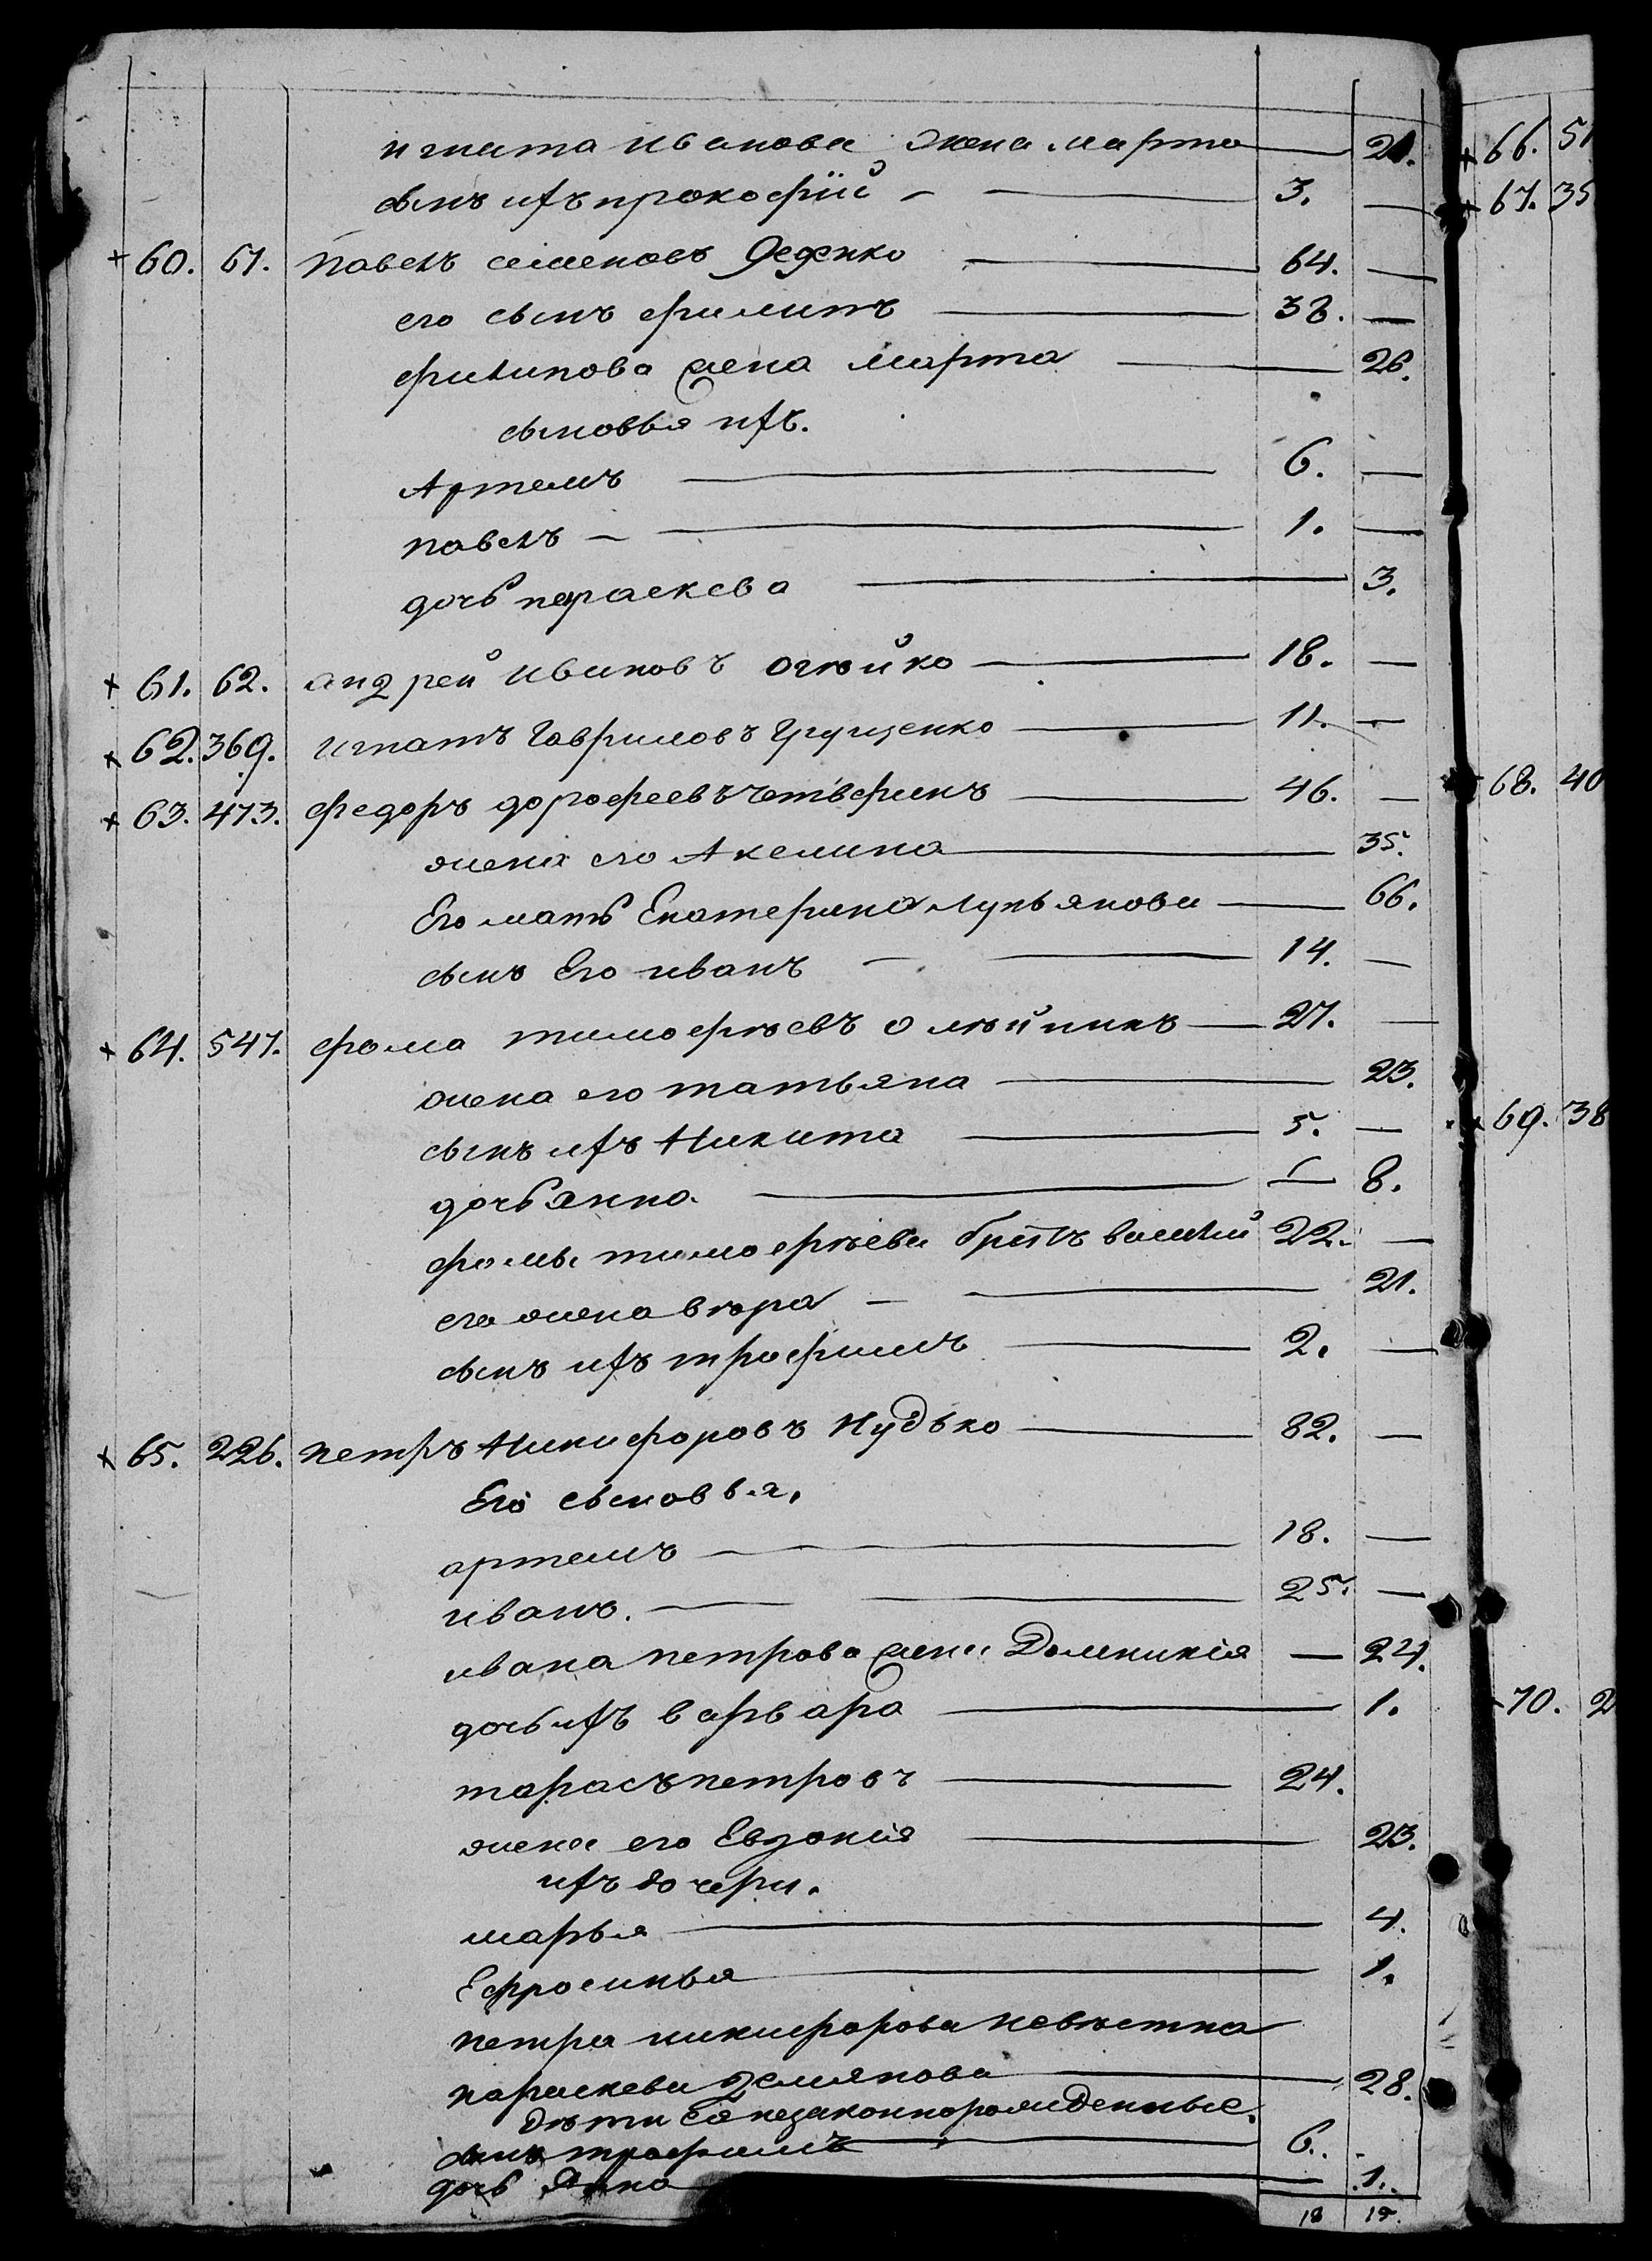 игната иванова жена марта — 21.
сынъ ихъ прокофій — 3. —
+ 60. 61. павелъ семеновъ Деденко — 64. —
его сынъ филипъ — 38. —
филипова жена марта — 26.
сыновья ихъ.
Артемъ — 6. —
павелъ — 1. —
дочь параскева — 3.
+ 61. 62. андрей ивановъ огѣйко — 18. —
+ 62. 369. игнатъ гавриловъ Грищенко — 11. —
+ 63. 473. федоръ дорофеевъ четверикъ — 46. —
жена его Акелина — 35.
Его мать Екатерина лукьянова — 66.
сынъ Его иванъ — 14. —
+ 64. 547. фома тимофѣевъ олѣйникъ — 27. —
жена его татьяна — 23.
сынъ ихъ Никита — 5. —
дочь анна — 8.
фомы тимофѣева братъ василій 22. —
его жена вѣра — 21.
сынъ ихъ трофимъ — 2. —
+ 65. 226. петръ Никифоровъ Нудько — 82. —
Его сыновья.
артемъ — 18. —
иванъ. — 25. —
ивана петрова жена Домникія — 24.
дочь ихъ варвара — 1.
тарасъ петровъ — 24.
жена его Евдокія — 23.
ихъ дочери.
марья — 4.
Ефросинья — 1.
петра никифорова невѣстка
параскева Демьянова — 28.
дѣти ея незаконнорожденные.
сынъ трофимъ — 6. -
дочь Анна — 1.
18 15.
+ 66. 51
+ 67. 35
68. 40
69. 38
70. 2